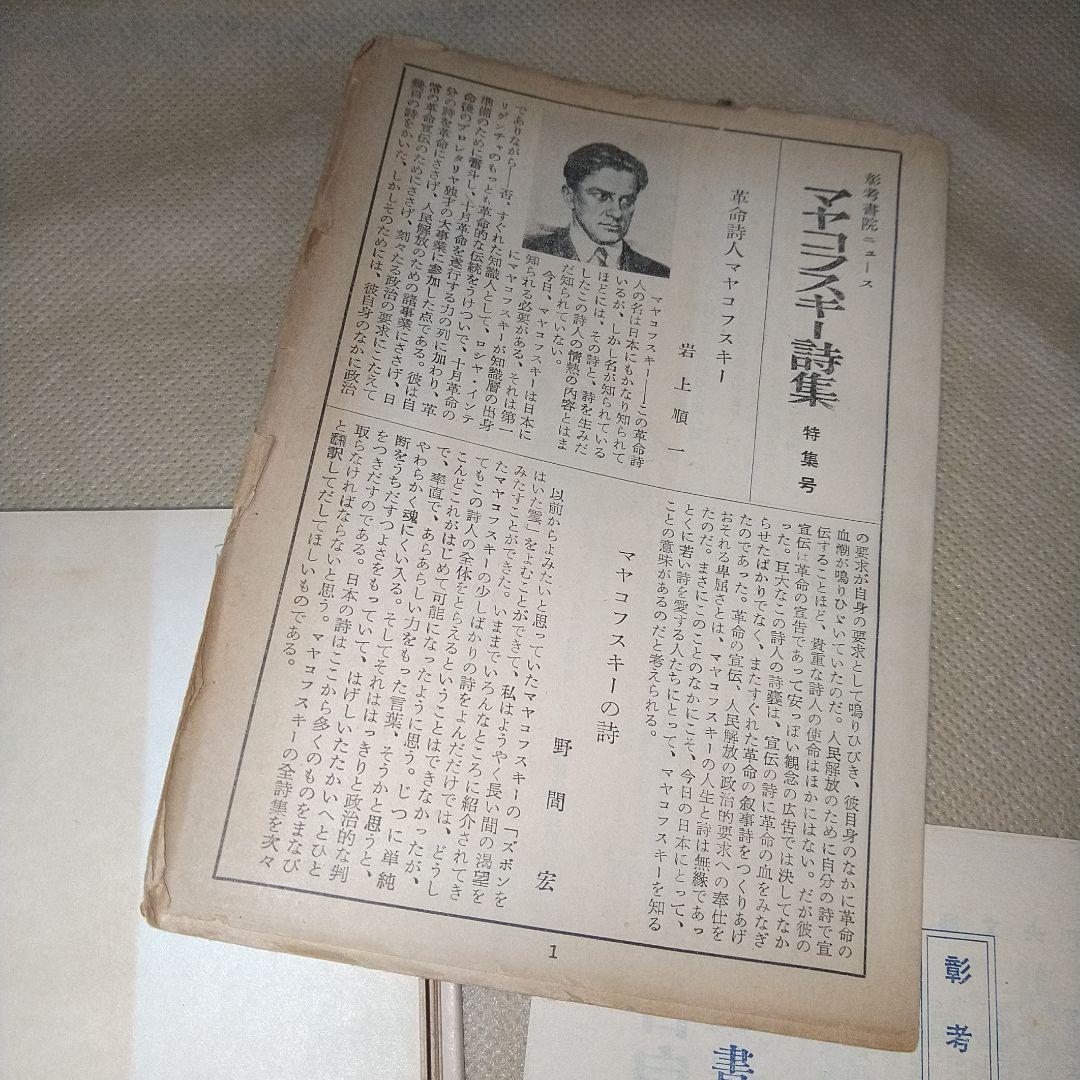 彰考書院ニュース
マヤコフスキー詩集 特集号
革命詩人マヤコフスキー
岩上順一
マヤコフスキー――この革命詩
人の名は日本にもかなり知られて
いるが、しかし名が知られている
ほどには、その詩と、詩を生みだ
したこの詩人の情熱の内容とはま
だ知られていない。
今日、マヤコフスキーは日本に
知られる必要がある、それは第一
にマヤコフスキーが知識層の出身
でありながら――否、すぐれた知識人として、ロシヤ・インテ
リゲンチャのもっとも革命的な伝統をうけついで、十月革命の
準備のために奮斗し、十月革命を遂行する力の列に加わり、革
命後のプロレタリヤ独才の大事業に参加した点である。彼は自
分の詩を革命にささげ、人民解放のための諸事業にささげ、日
常の革命宣伝のためにささげ、刻々たる政治の要求にこたえて
幾百の詩をかいた、しかしそのためには、彼自身のなかに政治
の要求が自身の要求として鳴りひびき、彼自身のなかに革命の
血潮が鳴りひゞいていたのだ。人民解放のために自分の詩で宣
伝することほど、貴重な詩人の使命はほかにはない。だが彼の
宣伝は革命の宣告であって安っぽい観念の広告では決してなか
った。巨大なこの詩人の詩嚢は、宣伝の詩に革命の血をみなぎ
らせたばかりでなく、またすぐれた革命の叙事詩をつくりあげ
たのであった。革命の宣伝、人民解放の政治的要求への奉仕を
おそれる卑屈さとは、マヤコフスキーの人生と詩は無縁であっ
たのだ。まさにこのことのなかにこそ、今日の日本にとって、
とくに若い詩を愛する人たちにとって、マヤコフスキーを知る
ことの意味があるのだと考えられる。
マヤコフスキーの詩
野間宏
以前からよみたいと思っていたマヤコフスキーの「ズボンを
はいた雲」をよむことができて、私はようやく長い間の渇望を
みたすことができた。いままでいろんなところに紹介されてき
たマヤコフスキーの少しばかりの詩をよんだだけでは、どうし
てもこの詩人の全体をとらえるということはできなかったが、
こんどこれがはじめて可能になったように思う。じつに単純
で、率直で、あらあらしい力をもった言葉、そうかと思うと、
やわらかく魂にくい入る。そしてそれははっきりと政治的な判
断をうちだすつよさをもっていて、はげしいたたかいへとひと
をつきだすのである。日本の詩はここから多くのものをまなび
取らなければならないと思う。マヤコフスキーの全詩集を次々
と飜訳してだしてほしいものである。
1
彰考
書